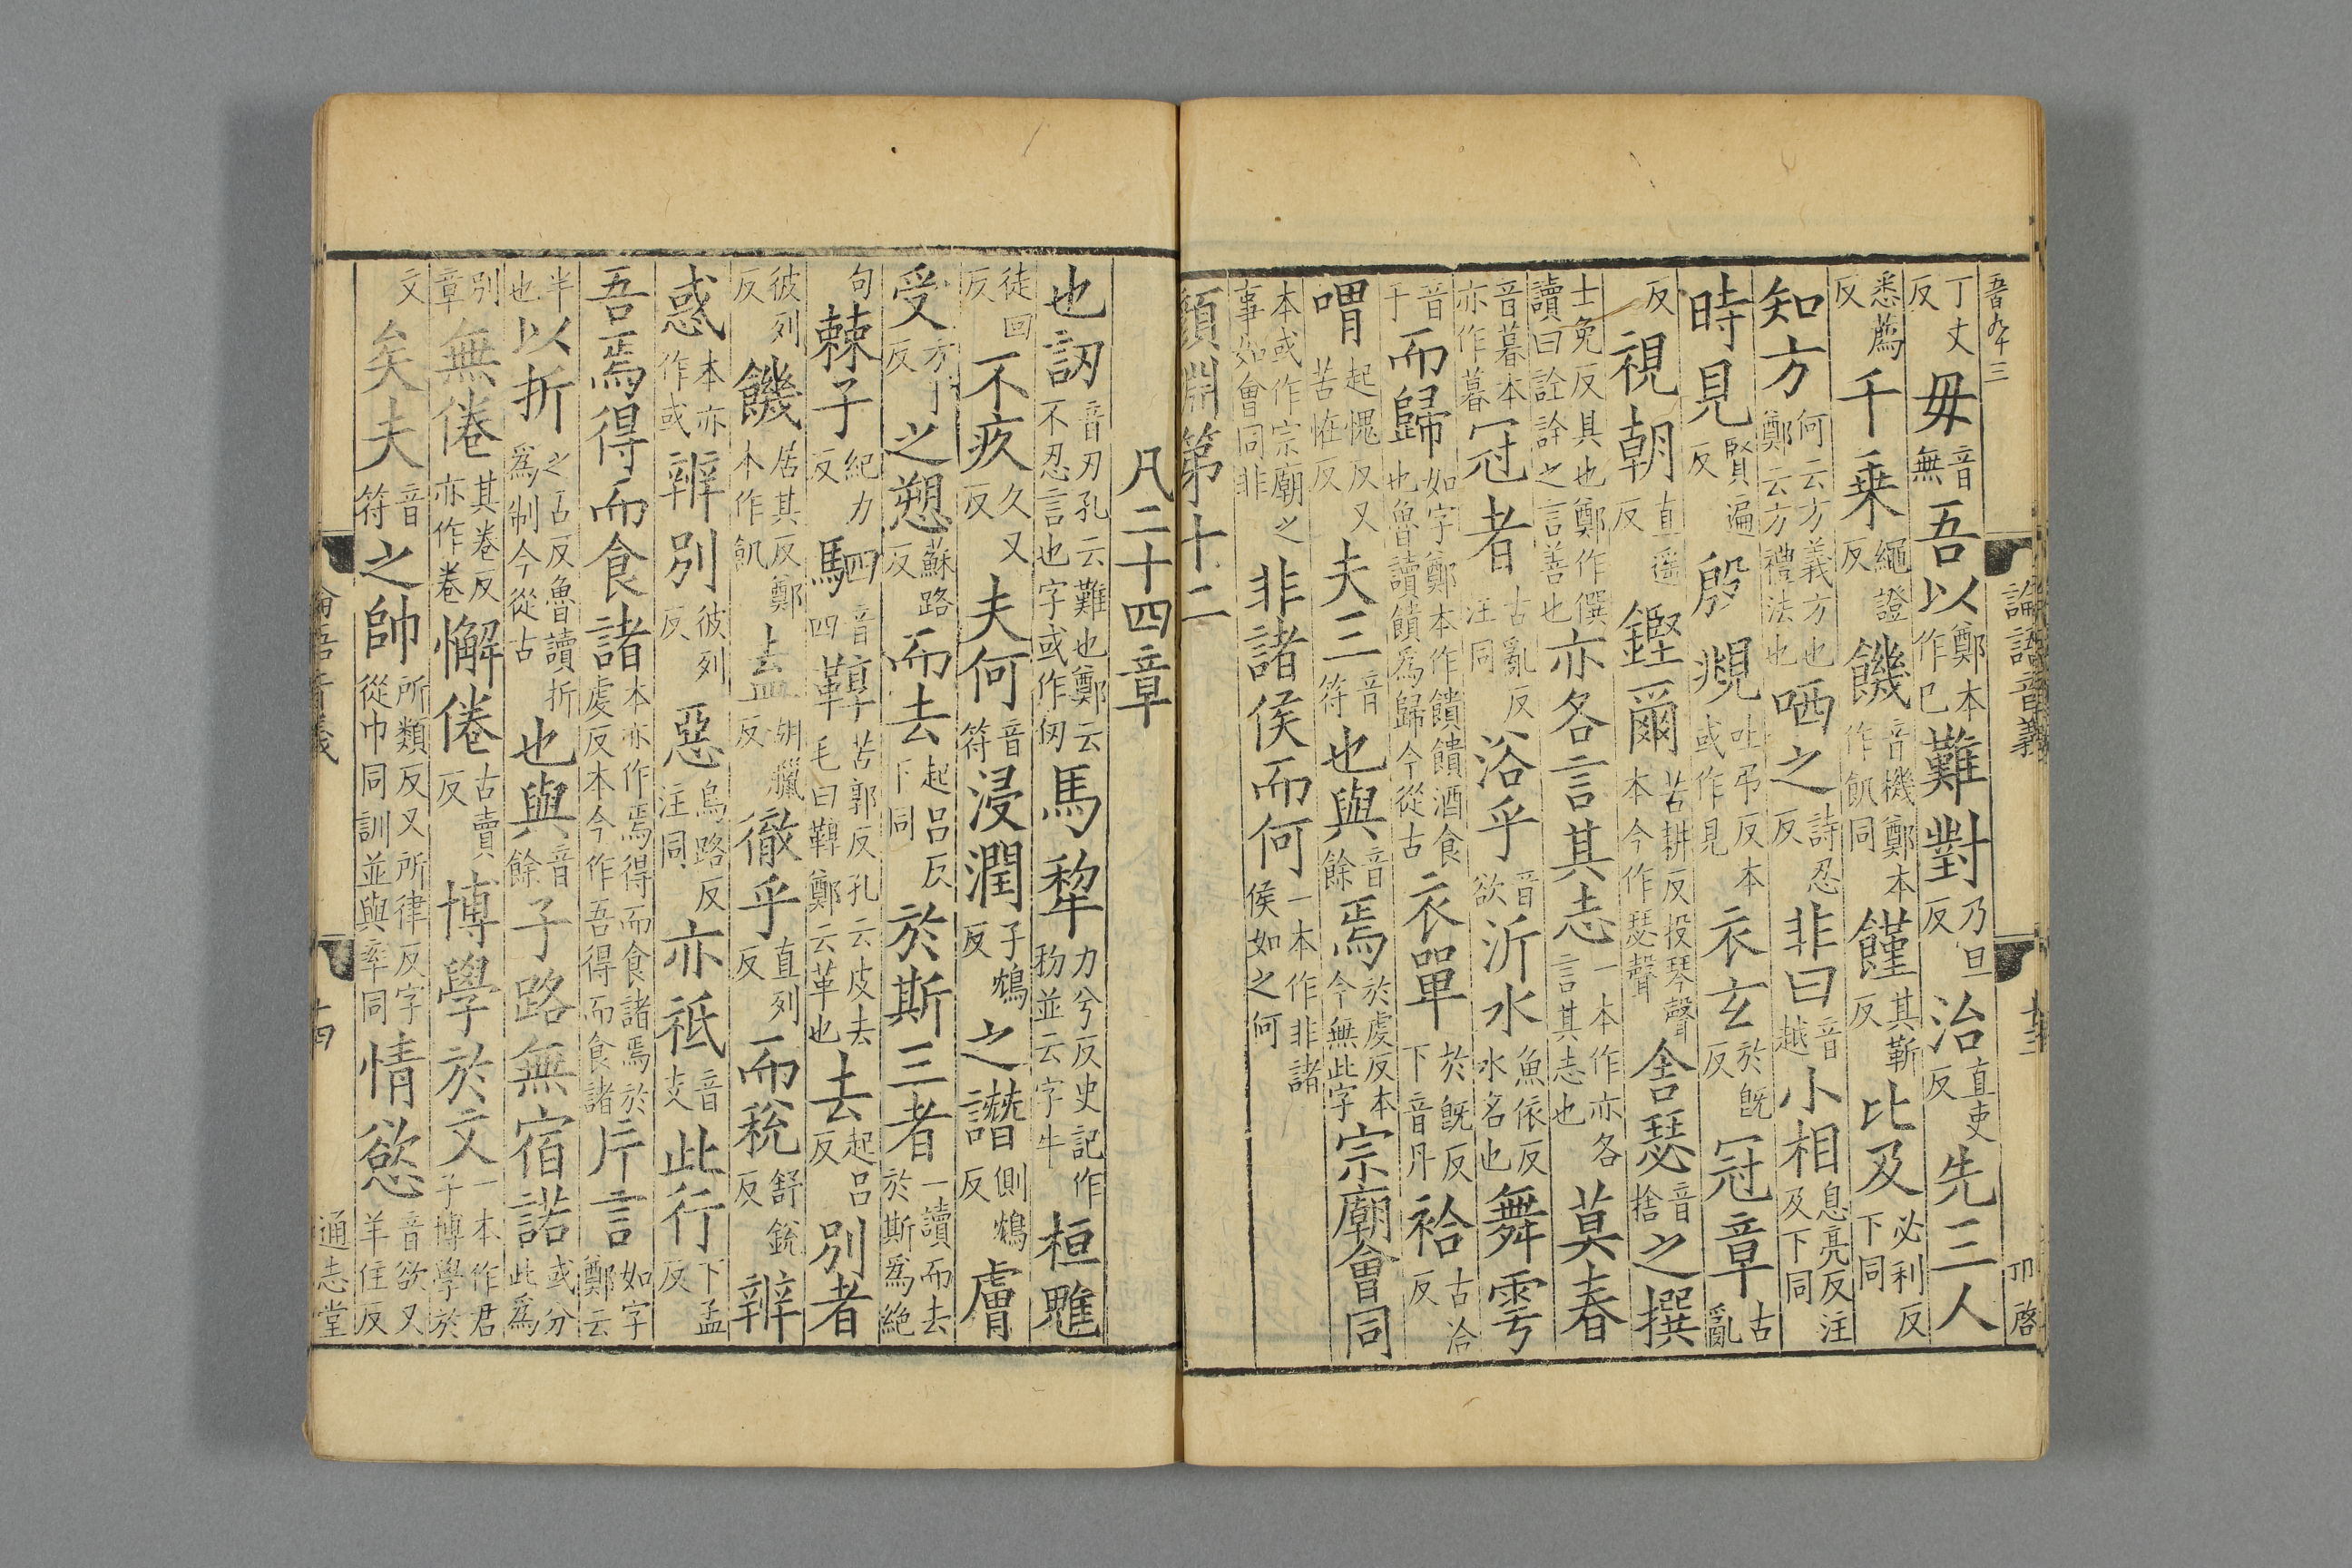 論語音義
丁丈反毋音無吾以鄭本作已難對乃旦反治直吏反先三人
悉薦反千乗繩證反饑音機鄭本作飢同饉其靳反比及必利反下同
知方何云方義方也鄭云方禮法也哂之詩忍反非曰音越小相息亮反注及下同
時見賢遍反殷覜吐弔反本或作見衣玄於旣反冠章古亂
反視朝直遥反鏗爾苦耕反投琴聲本今作瑟聲舍瑟音捨之撰
士免反具也鄭作僎讀曰詮詮之言善也亦各言其志一本作亦各言其志也莫春
音暮本亦作暮冠者古亂反注同浴乎音欲沂水魚依反水名也舞雩
音于而歸如字鄭本作饋饋酒食也魯讀饋爲歸今從古衣單於旣反下音丹袷古洽反
喟起愧反又苦怪反夫三音符也與音餘焉於虔反本今無此字宗廟會同
本或作宗廟之事如會同非非諸侯而何一本作非諸侯如之何
顏淵第十二
凡二十四章
也訒音刃孔云難也鄭云不忍言也字或作仞馬犂力兮反史記作牞並云字牛桓魋
徒回反不疚久又反夫何音符浸潤子鴆反之譖側鴆反膚
受方于反之愬蘇路反而去起呂反下同於斯三者一讀而去於斯爲絶
句棘子紀力反駟音四鞹苦郭反孔云皮去毛曰鞹鄭云革也去起呂反別者
彼列反饑居其反鄭本作飢盍胡臘反徹乎直列反而稅舒銳反辨
惑本亦作或辨別彼列反惡烏路反注同亦祇音支此行下孟反
吾焉得而食諸本亦作焉得而食諸焉於虔反本今作吾得而食諸片言如字鄭云
半也以折之舌反魯讀折爲制今從古也與音餘子路無宿諾或分此爲
別章無倦其卷反亦作卷懈倦古賣反博學於文一本作君子博學於
文矣夫音符之帥所類反又所律反字從巾同訓並與率同情慾音欲又羊住反
論語音義 十四 通志堂